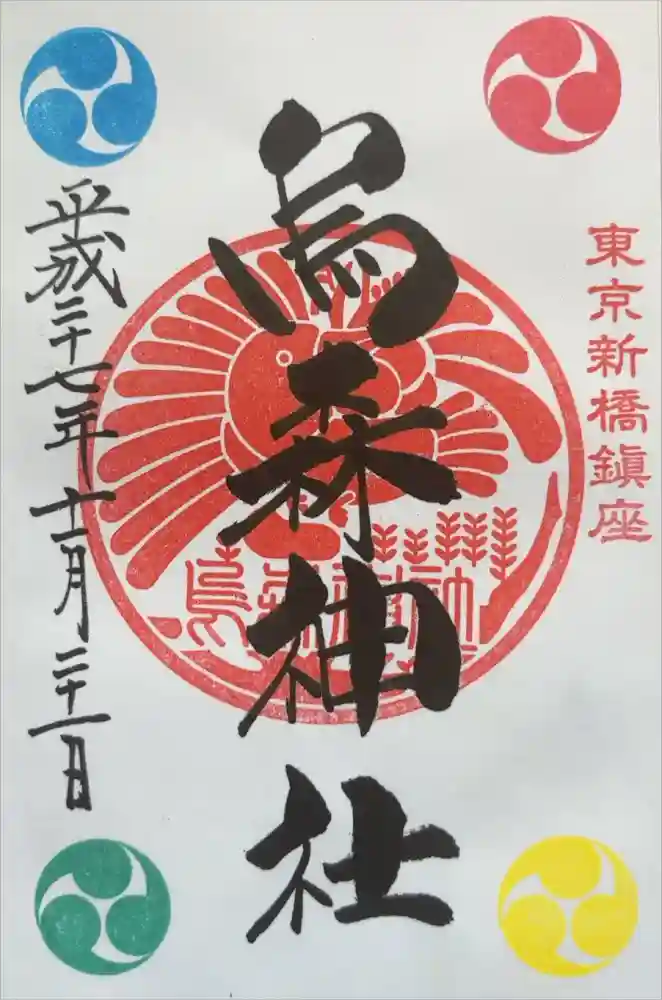 東京新橋鎮座
烏森神社
烏森神社
平成二十七年十一月二十一日